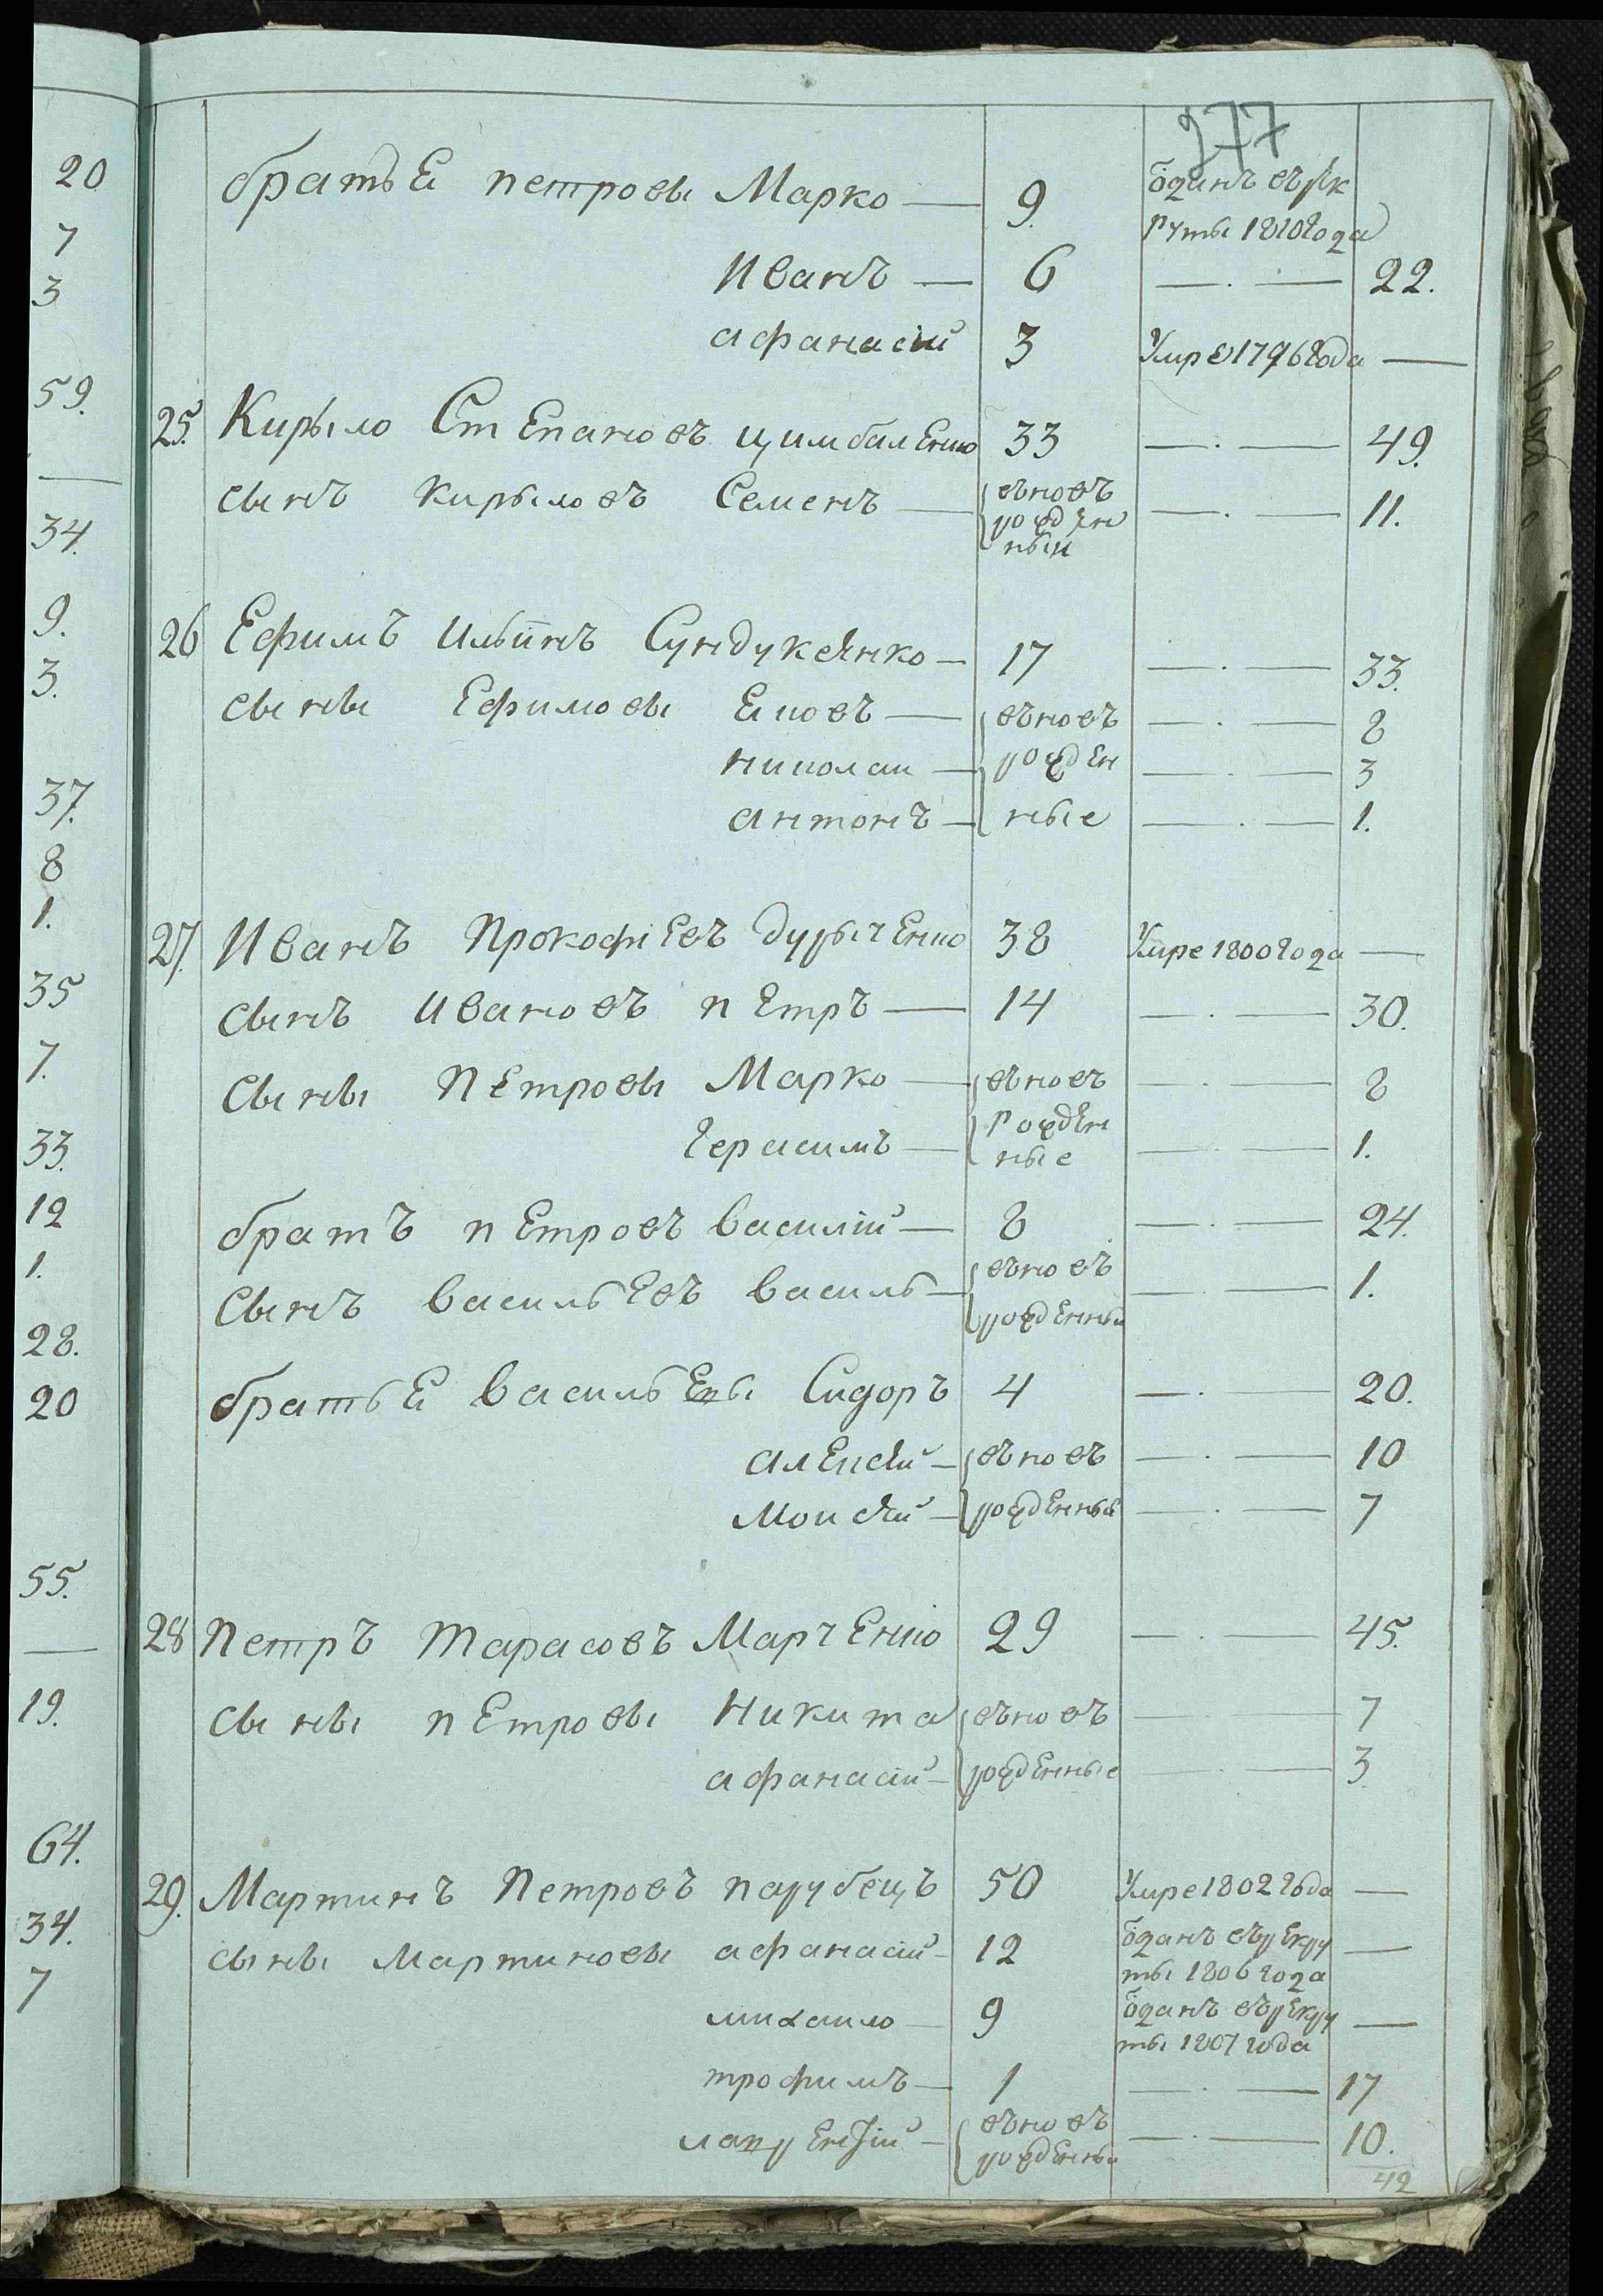 20
7
3
59.
34.
9.
3.
37.
8
1.
35
7.
33.
12
1.
28.
20
55.
19.
64.
34.
7
277
братья петровы Марко — 9. оданъ въ рек
руты 1810 года
Иванъ — 6 — . — 22.
афанасій 3 Умре 1796 года —
25. Кирыло Степановъ цимбаленко 33 — . — 49.
сынъ кирыловъ Семенъ — вновь — . — 11.
рожден
ный
26 Ефимъ Ильинъ Сундукѣянко — 17 — . — 33.
сыны Ефимовы — вновь — . — 8
николаи — рожден — . — 3
антонъ — ные — . — 1.
27. Иванъ Прокофіевъ 38 Умре 1800 года —
сынъ Ивановъ петръ — 14 — . — 30.
Сыны Петровы Марко — вновь — . — 8
герасимъ — рожден — . — 1.
ные
братъ петровъ василій — 8 — . — 24.
сынъ васильевъ василь — вновь — . — 1.
рожденный
братья васильевы Сидоръ 4 — . — 20.
алексѣй — вновь — . — 10
моисѣй — рожденные — . — 7
28 Петръ Тарасовъ Марченко 29 — . — 45.
сыны петровы Никита вновь — 7
афанасій — рожденные — . — 3.
29. Мартинъ Петровъ парубецъ 50 Умре 1802 года —
сыны Мартиновы афанасій — 12 оданъ въ рекру —
ты 1806 года
михаило — 9 оданъ въ рекру —
ты 1807 года
трофимъ — 1 — . — 17
лаврентій — вновь — . — 10.
рожденный
42